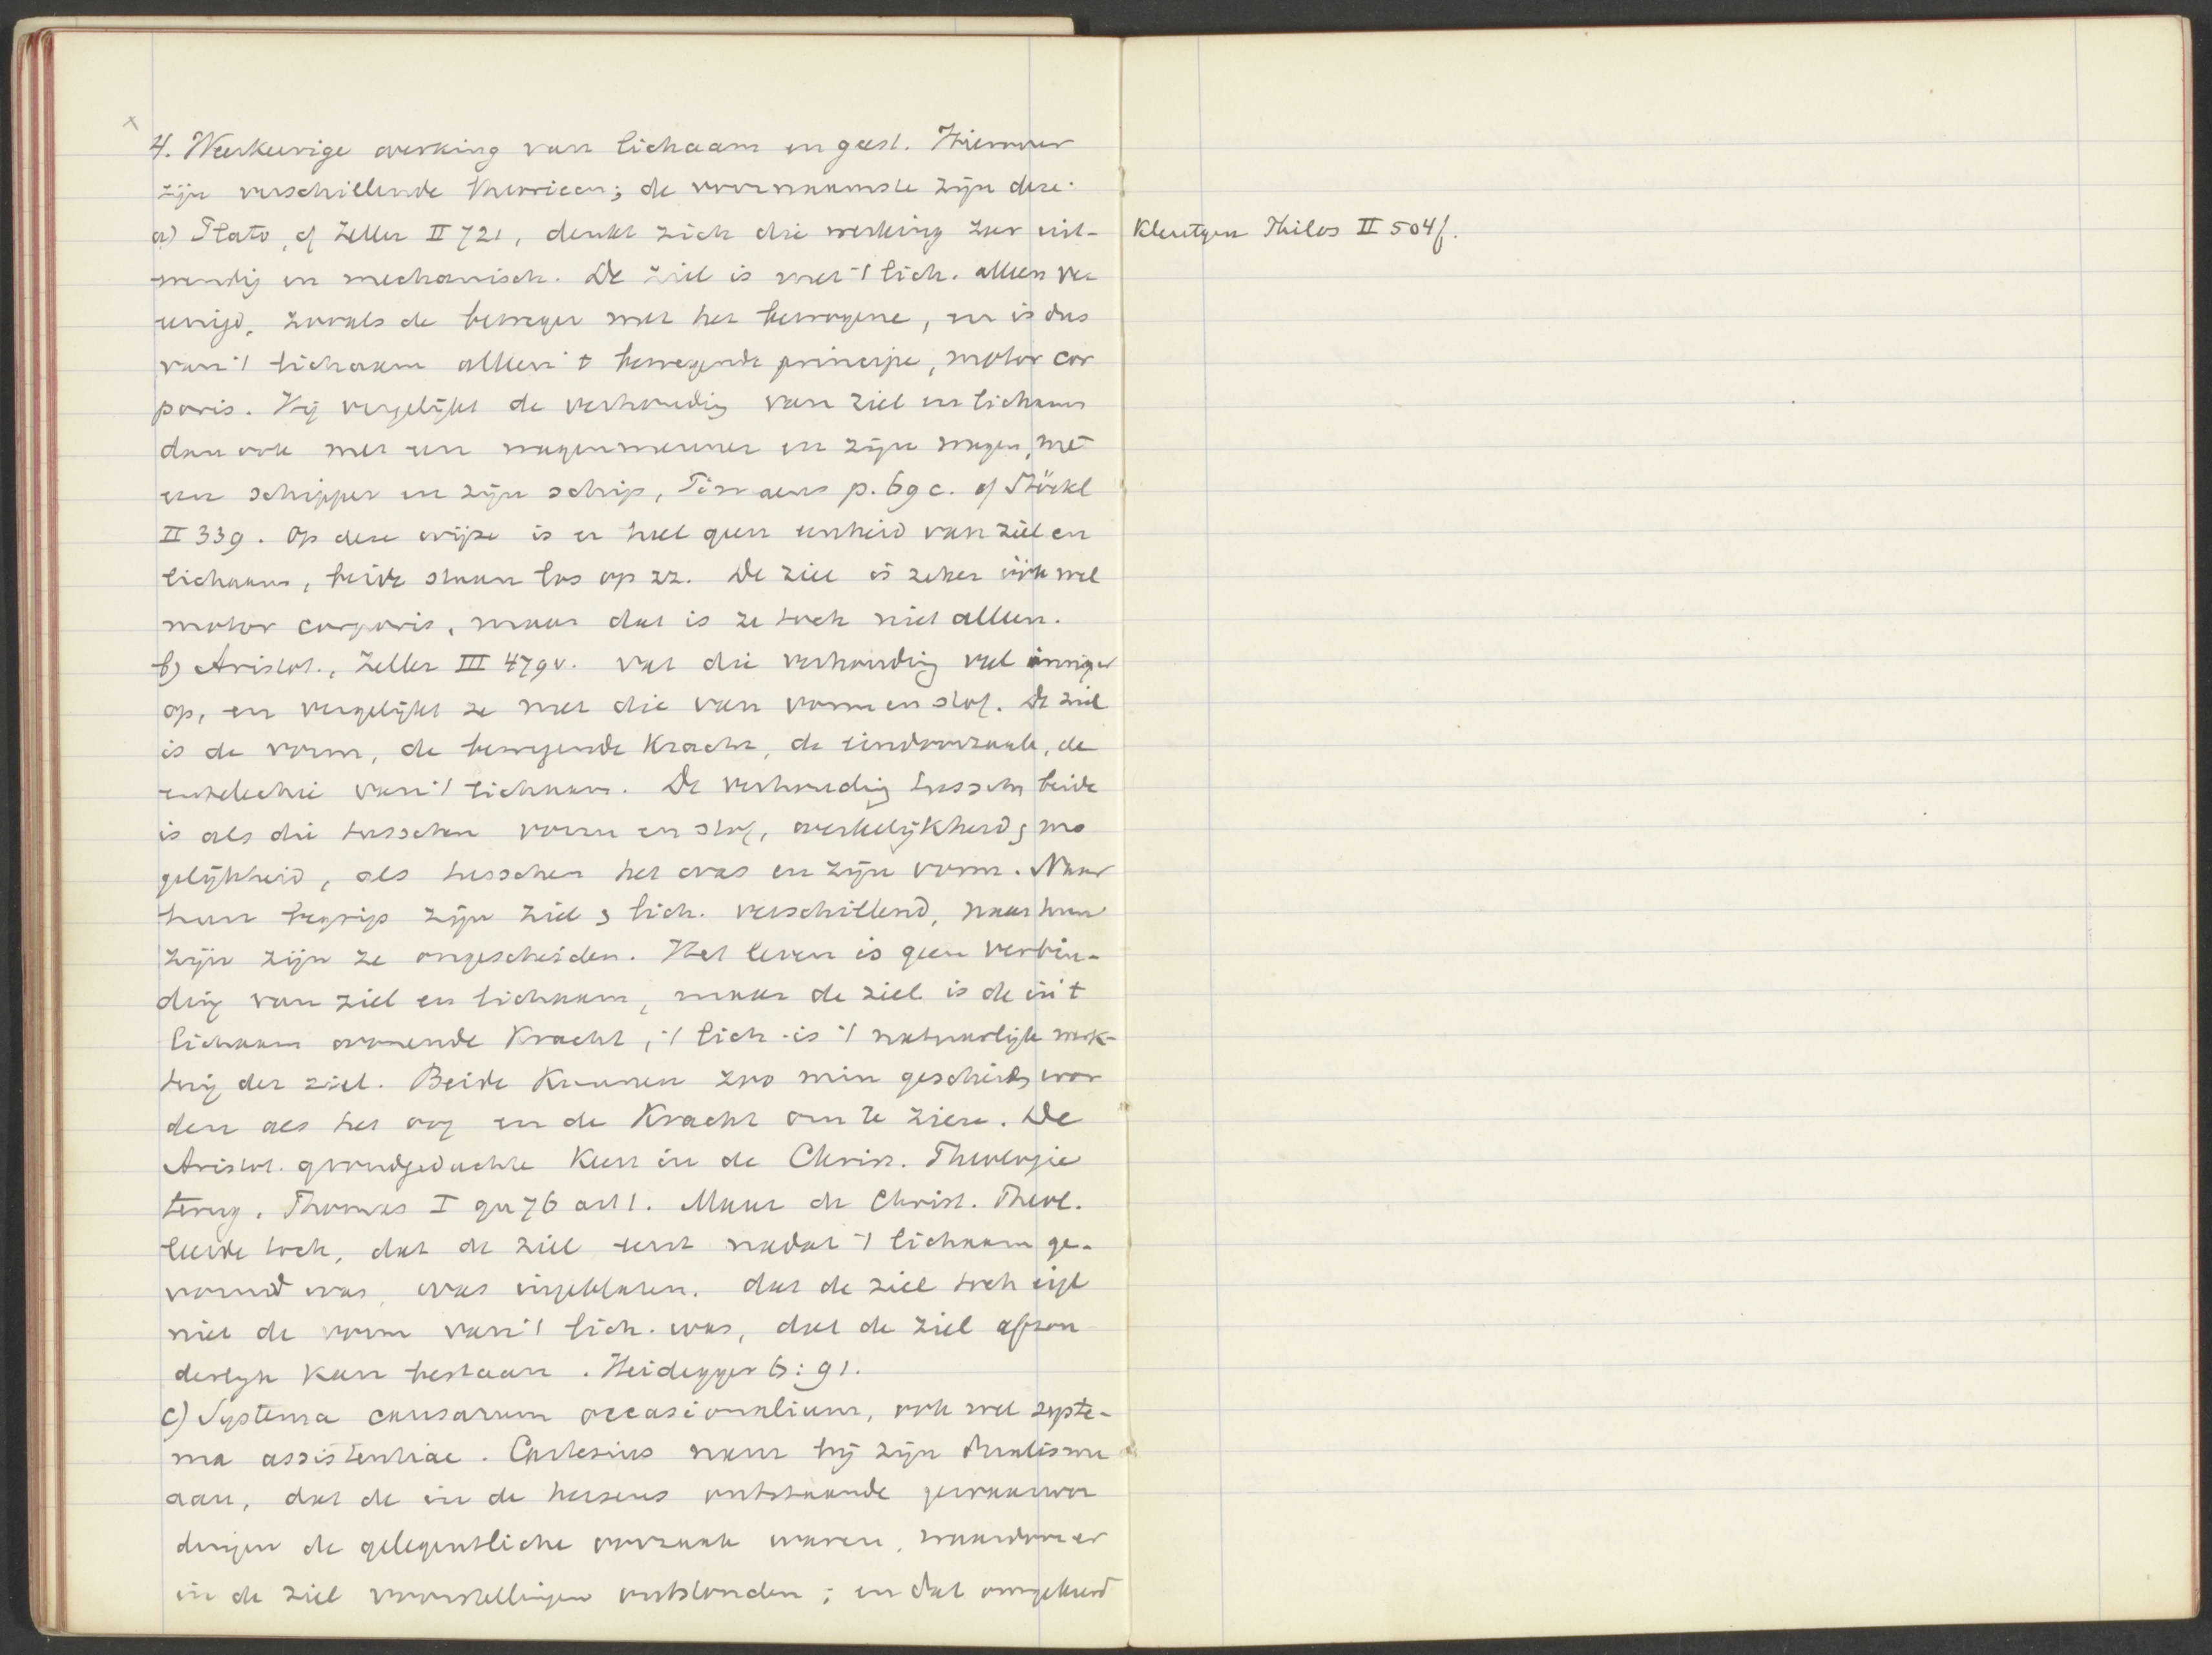 4. Weerkeerige werking van lichaam en geest. Hierover
zijn verschillende theorieen; de voornaamste zijn deze.
a) Plato, cf Zeller II 721, denkt zich die werking zeer uit-
wendig en mechanisch. De ziel is met 't lich. alleen ver
eenigd, zooals de beweger met het bewogene, en is dus
van 't lichaam alleen 't bewegende principe, motor cor
poris. Hij vergelijkt de verhouding van ziel en lichaam
dan ook met een wagenmenner en zijn wagen, met
een schipper en zijn schip, Timaeus p. 69 c. cf Stöckl
II 339. Op deze wijze is er heel geen eenheid van ziel en
lichaam, beide staan los op zz. De ziel is zeker ook wel
motor corporis, maar dat is ze toch niet alleen.
b) Aristot., Zeller III 479 v. vat die verhouding veel inniger
op, en vergelijkt ze met die van vorm en stof. De ziel
is de vorm, de bewegende kracht, de eindoorzaak, de
entelechie van 't lichaam. De verhouding tusschen beide
is als die tusschen vorm en stof, werkelijkheid & mo
gelijkheid, als tusschen het was en zijn vorm. Naar
hun begrip zijn ziel & lich. verschillend, naar hun
zijn zijn ze ongescheiden. Het leven is geen verbin-
ding van ziel en lichaam, maar de ziel is de in 't
lichaam wonende kracht, 't lich. is 't natuurlijk werk-
tuig der ziel. Beide kunnen zoo min gescheiden wor
den als het oog en de kracht om te zien. De
Aristot. grondgedachte keert in de Christ. Theologie
terug. Thomas I qu 76 art 1. Maar de Christ. Theol.
leerde toch, dat de ziel eerst nadat 't lichaam ge-
vormd was, was ingeblazen. dat de ziel toch eigl
niet de vorm van 't lich. was, dat de ziel afzon
derlijk kan bestaan. Heidegger 6:91.
c) Systema causarum occasionalium, ook wel syste-
ma assistentiae. Cartesius nam bij zijn dualisme
aan, dat de in de hersens ontstaande gewaarwor
dingen de gelegentliche oorzaak waren, waardoor er
in de ziel voorstellingen ontstonden; en dat omgekeerd
Kleutgen Philos II 504 f.